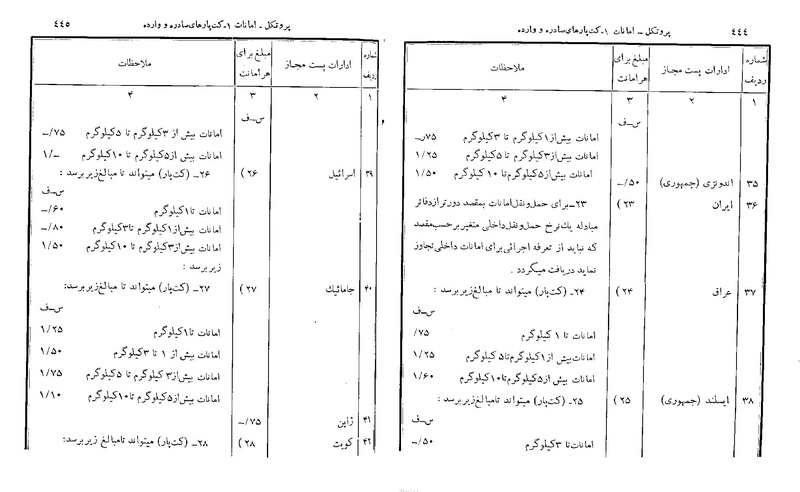 ۴۴۴ پروتکل ـ امانات ۱ـ کت‌پارهای صادره و وارده
شماره ردیف | ادارات پست مجاز | مبلغ برای هر امانت | ملاحظات
۱ | ۲ | ۳ | ۴
س ـ ف
امانات بیش از ۱ کیلوگرم تا ۳ کیلوگرم ۷۵ر ـ
امانات بیش از ۳ کیلوگرم تا ۵ کیلوگرم ۱/۲۵
امانات بیش از ۵ کیلوگرم تا ۱۰ کیلوگرم ۱/۵۰
۳۵ اندونزی (جمهوری) ۵۰/ـ
۳۶ ایران ۲۳) ۲۳ـ برای حمل و نقل امانات بمقصد دورتر از دفاتر
مبادله یك نرخ حمل و نقل داخلی متغیر برحسب مقصد
که نباید از تعرفه اجرائی برای امانات داخلی تجاوز
نماید دریافت میگردد .
۳۷ عراق ۲۴) ۲۴ـ (کت‌پار) میتواند تا مبالغ زیر برسد :
س ـ ف
امانات تا ۱ کیلوگرم ۷۵/
امانات بیش از ۱ کیلوگرم تا ۵ کیلوگرم ۱/۲۵
امانات بیش از ۵ کیلوگرم تا ۱۰ کیلوگرم ۱/۶۰
۳۸ ایسلند (جمهوری) ۲۵) ۲۵ـ (کت‌پار) میتواند تا مبالغ زیر برسد :
س ـ ف
امانات تا ۳ کیلوگرم ۵۰/ـ
پروتکل ـ امانات ۱ـ کت‌پارهای صادره و وارده ۴۴۵
شماره ردیف | ادارات پست مجاز | مبلغ برای هر امانت | ملاحظات
۱ | ۲ | ۳ | ۴
س ـ ف
امانات بیش از ۳ کیلوگرم تا ۵ کیلوگرم ۷۵/ـ
امانات بیش از ۵ کیلوگرم تا ۱۰ کیلوگرم ـ/۱
۳۹ اسرائیل ۲۶) ۲۶ـ (کت‌پار) میتواند تا مبالغ زیر برسد :
س ـ ف
امانات تا ۱ کیلوگرم ۶۰/ـ
امانات بیش از ۱ کیلوگرم تا ۳ کیلوگرم ۸۰/ـ
امانات بیش از ۳ کیلوگرم تا ۱۰ کیلوگرم ۱/۵۰
زیر برسد :
۴۰ جامائیك ۲۷) ۲۷ـ (کت‌پار) میتواند تا مبالغ زیر برسد:
س ـ ف
امانات تا ۱ کیلوگرم ۱/۲۵
امانات بیش از ۱ تا ۳ کیلوگرم ۱/۵۰
امانات بیش از ۳ کیلوگرم تا ۵ کیلوگرم ۱/۷۵
امانات بیش از ۵ کیلوگرم تا ۱۰ کیلوگرم ۱/۱۰
۴۱ ژاپن ۷۵/ـ
۴۲ کویت ۲۸) ۲۸ـ (کت‌پار) میتواند تا مبالغ زیر برسد: